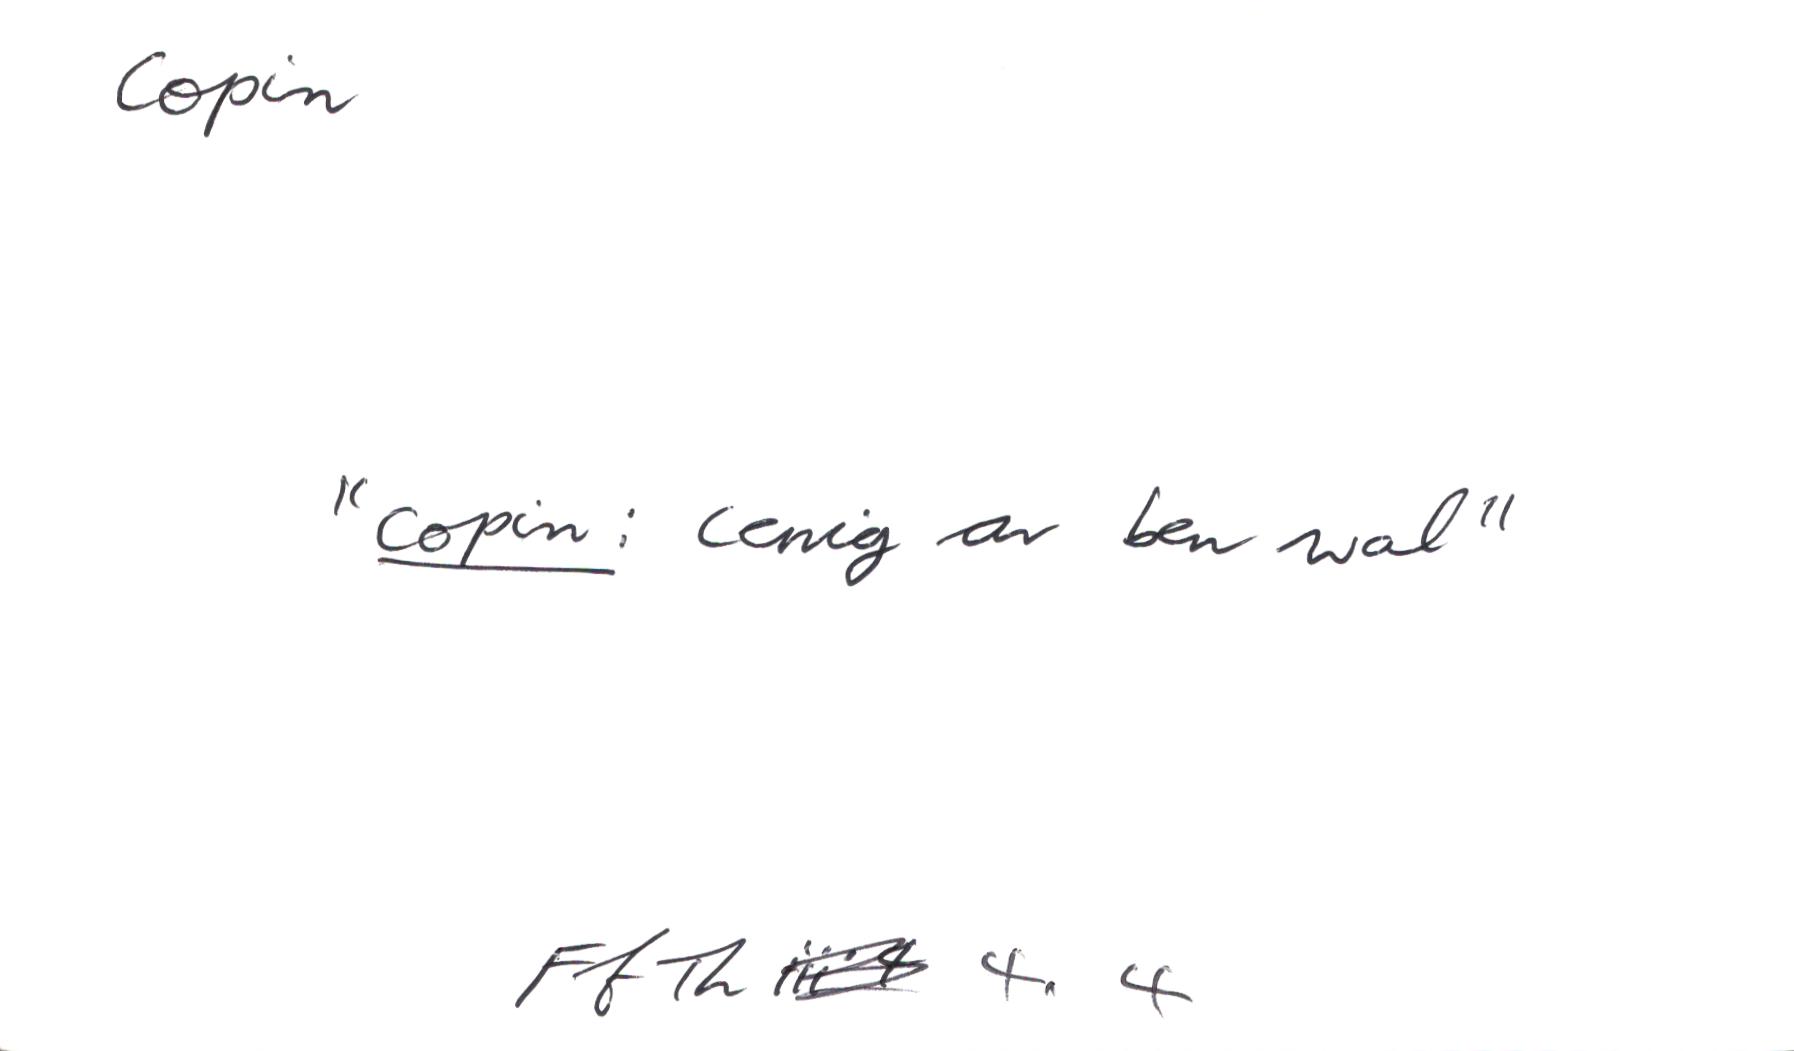 Copin
"copin: cenig ar ben wal"
Ff Th 4. 4